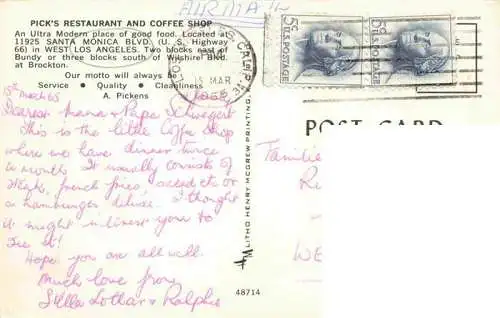 PICK'S RESTAURANT AND COFFEE SHOP
An Ultra Modern place of good food. Located at
11925 SANTA MONICA BLVD. (U. S. Highway
66) in WEST LOS ANGELES. Two blocks east of
Bundy or three blocks south of Wilshire Blvd.
at Brockton.
Our motto will always be
Service • Quality • Cleanliness
A. Pickens
AIRMAIL
15 MAR
1965
5¢ U.S. POSTAGE
5¢ U.S. POSTAGE
15th March 65
Dearest Mama + Papa
This is the little Coffee Shop
where we have dinner twice
a month. It usually consists of
steak, french fries, salad etc or
a hamburger deluxe. I thought
it might interest you to
see it!
Hope you are all well.
Much love from
Stella Lothar + Ralphie
LITHO HENRY MCGREW PRINTING,
48714
POST CARD
Familie